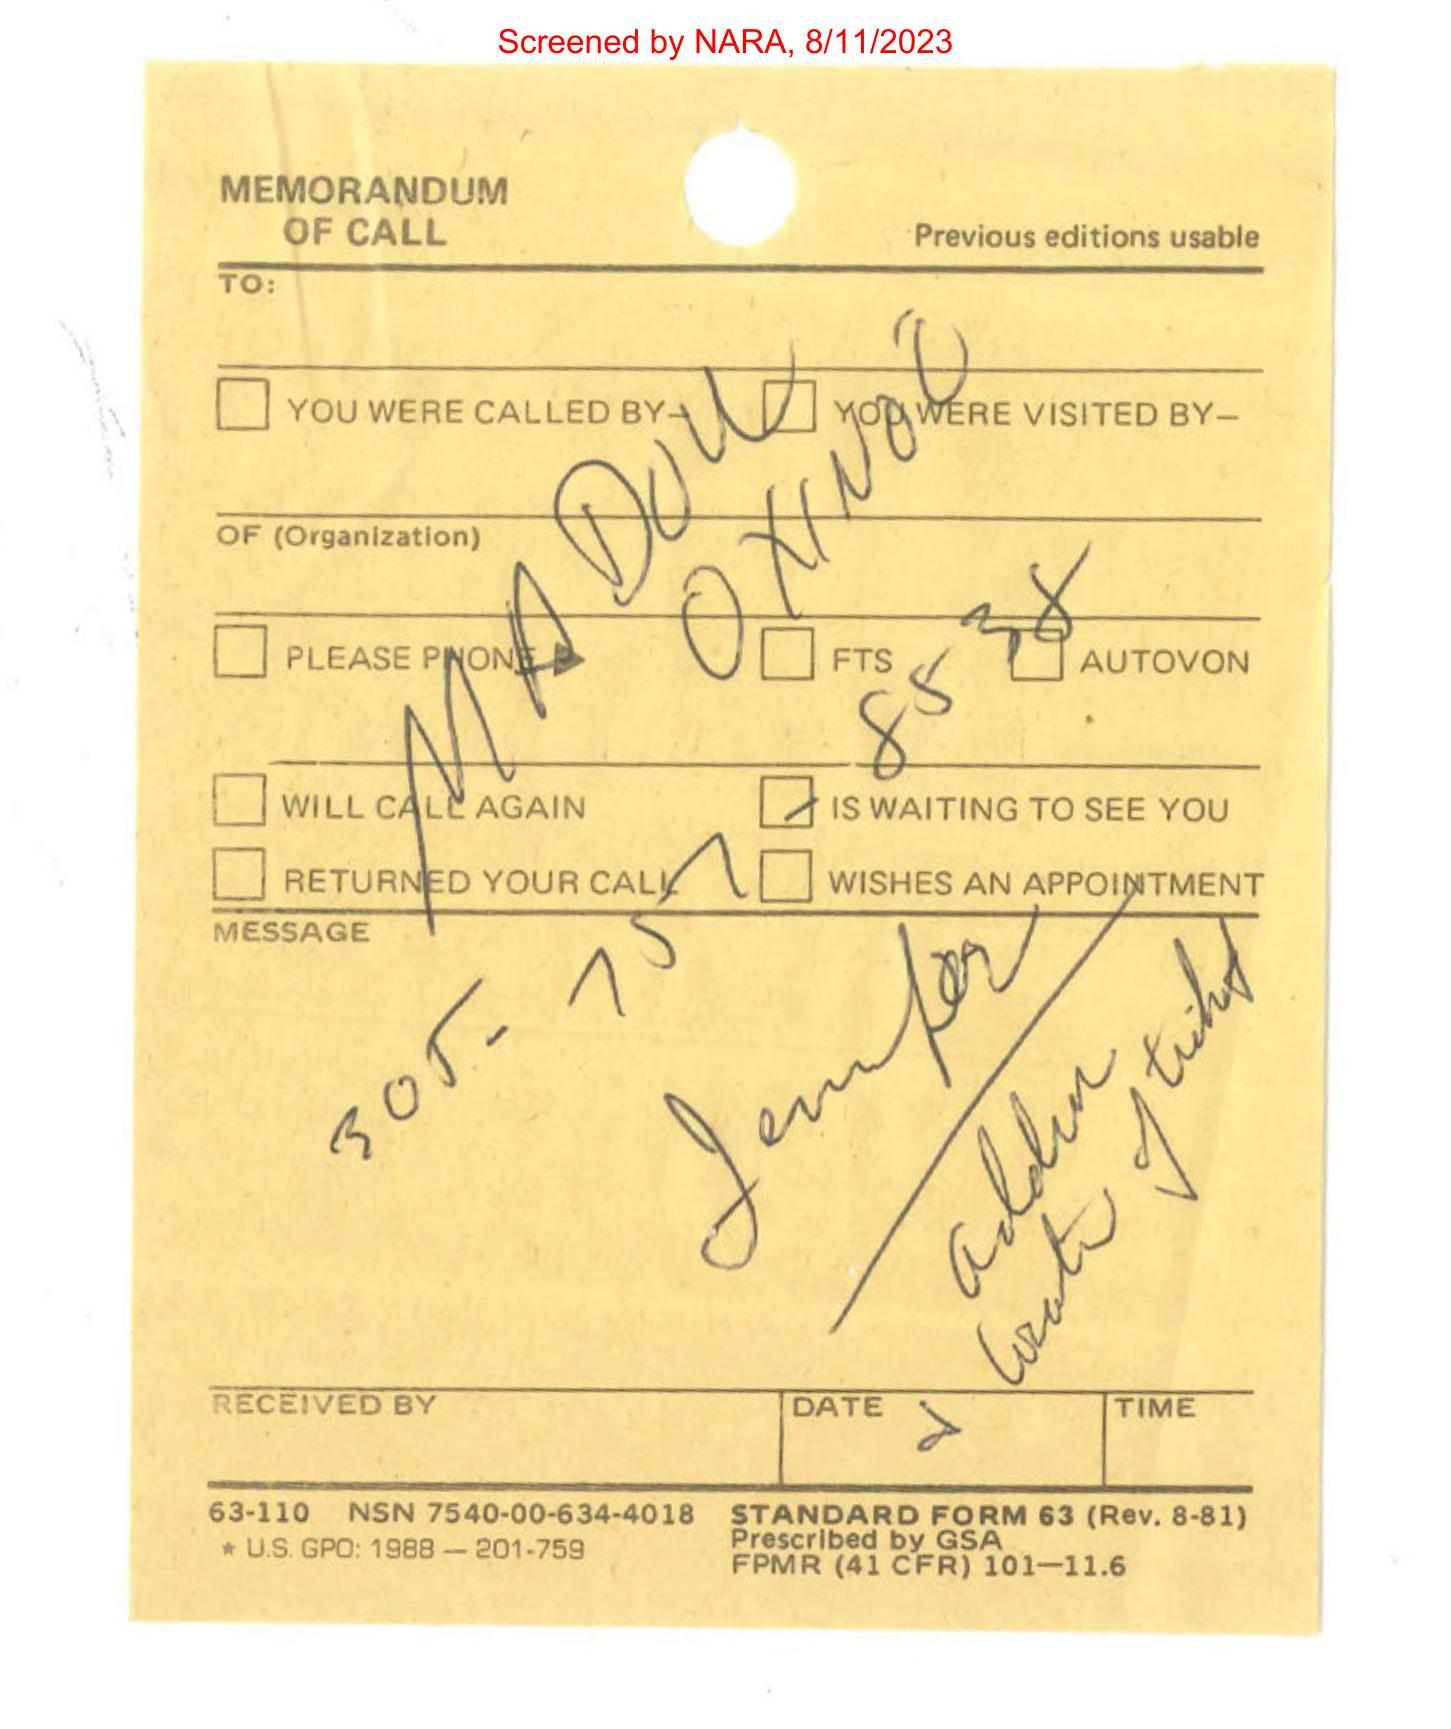 Screened by NARA, 8/11/2023
MEMORANDUM
OF CALL
Previous editions usable
TO:
YOU WERE CALLED BY—
YOU WERE VISITED BY—
OF (Organization)
PLEASE PHONE ▶
FTS
AUTOVON
WILL CALL AGAIN
IS WAITING TO SEE YOU
RETURNED YOUR CALL
WISHES AN APPOINTMENT
MESSAGE
305-757
8538
Jennifer
RECEIVED BY
DATE
TIME
63-110 NSN 7540-00-634-4018
* U.S. GPO: 1988 — 201-759
STANDARD FORM 63 (Rev. 8-81)
Prescribed by GSA
FPMR (41 CFR) 101—11.6